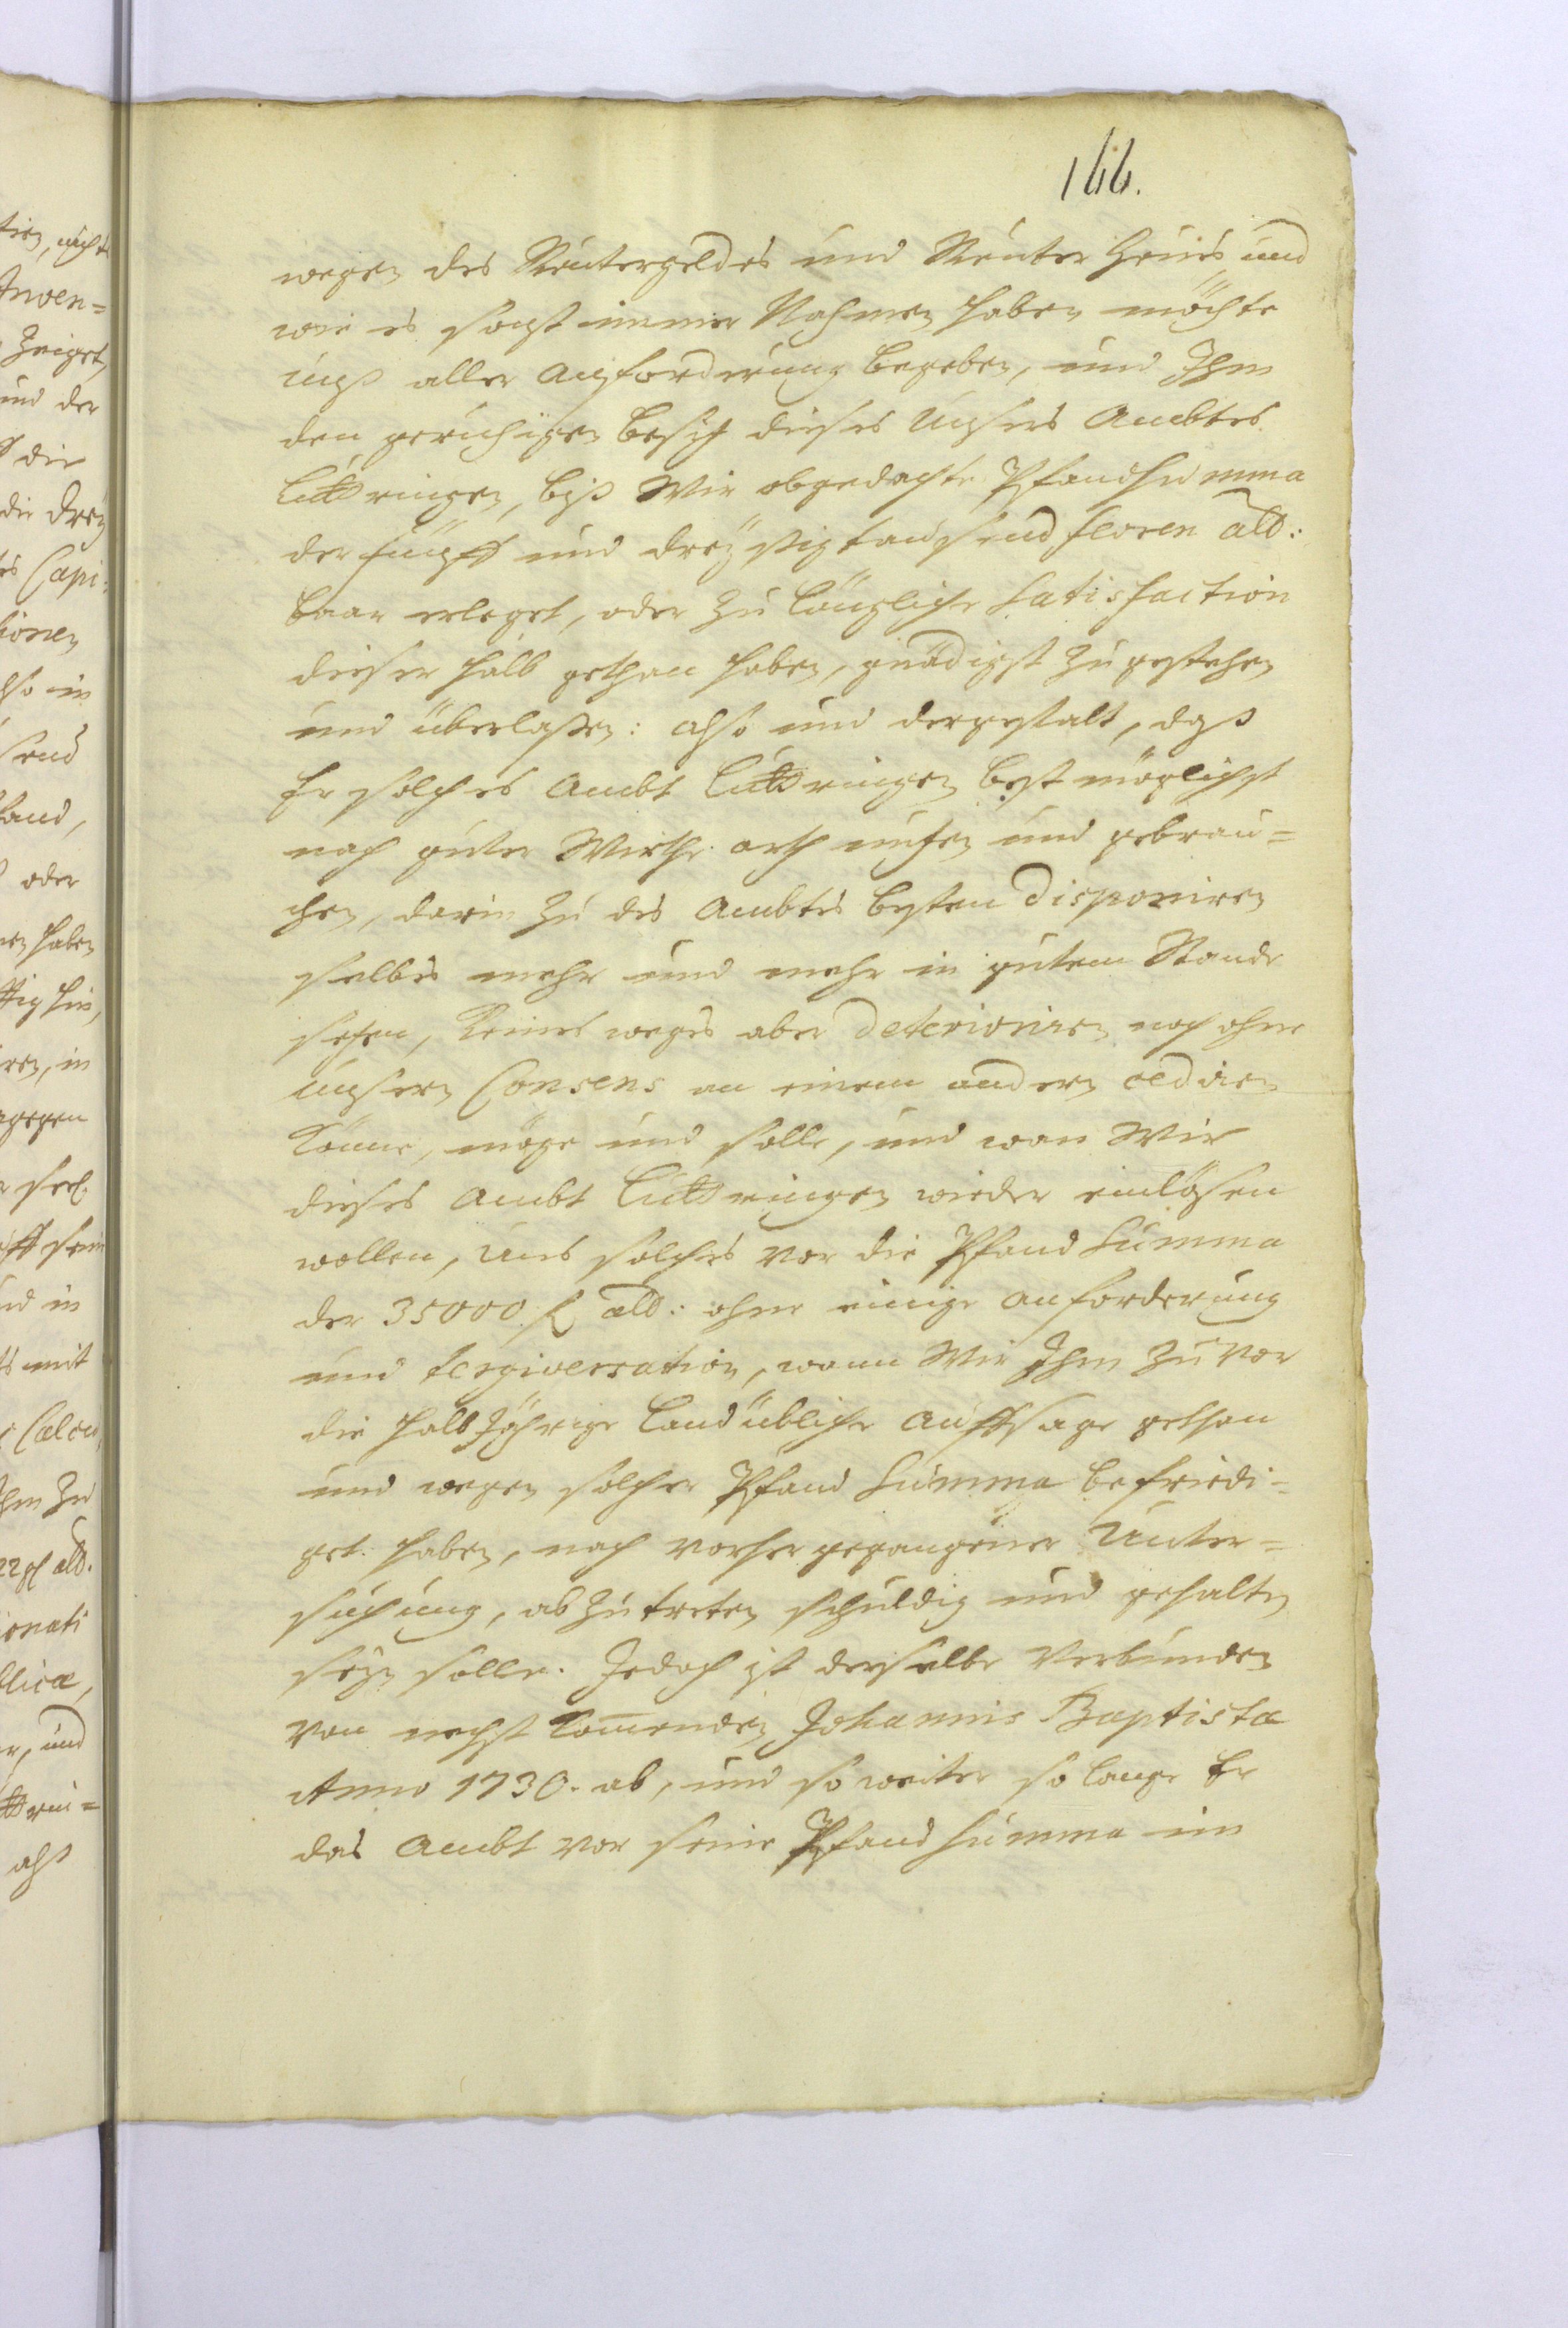 166.
wegen des Reutergeldes und Reuter Heues und
wie es sonst immer Nahmen haben möchte
unß aller anforderung begeben, und Ihm
den geruhigen Besitz dieses Unsers Ambtes
Luttringen, biß Wir obgedachte Pfandsumma
der fünff und dreyßigtausend floren alb:
baar erleget, oder zu längliche Satisfaction
dieser halb gethan haben, gnädigst zugestehen
und überlaßen: also und dergestalt, daß
Er solches Ambt Luttringen bestmöglichst
nach guter Wirthe arth nutzen und gebrau=
chen, darin zu des Ambtes besten disponiren
selbes mehr und mehr in gutem Stande
setzen, Keines weges aber deterioriren noch ohne
unsern Consens an einem andern cediren
Könne, möge und solle, und wan Wir
dieses Ambt Luttringen wieder einlösen
wollen, uns solches vor die Pfand Summa
der 35000 fl alb: ohne einige anforderung
und tergiversation, wann Wir Ihm zuvor
die halbjährige landübliche auffsage gethan
und wegen solcher Pfand Summa befriedi=
get haben, nach vorhergegangener Unter=
suchung, abzutreten schuldig und gehalten
seyn solle. Jedoch ist derselbe verbunden
von nechst Kommenden Johannis Baptista
Anno 1730. ab, und so weiter so lange Er
das Ambt vor seine Pfandsumma im